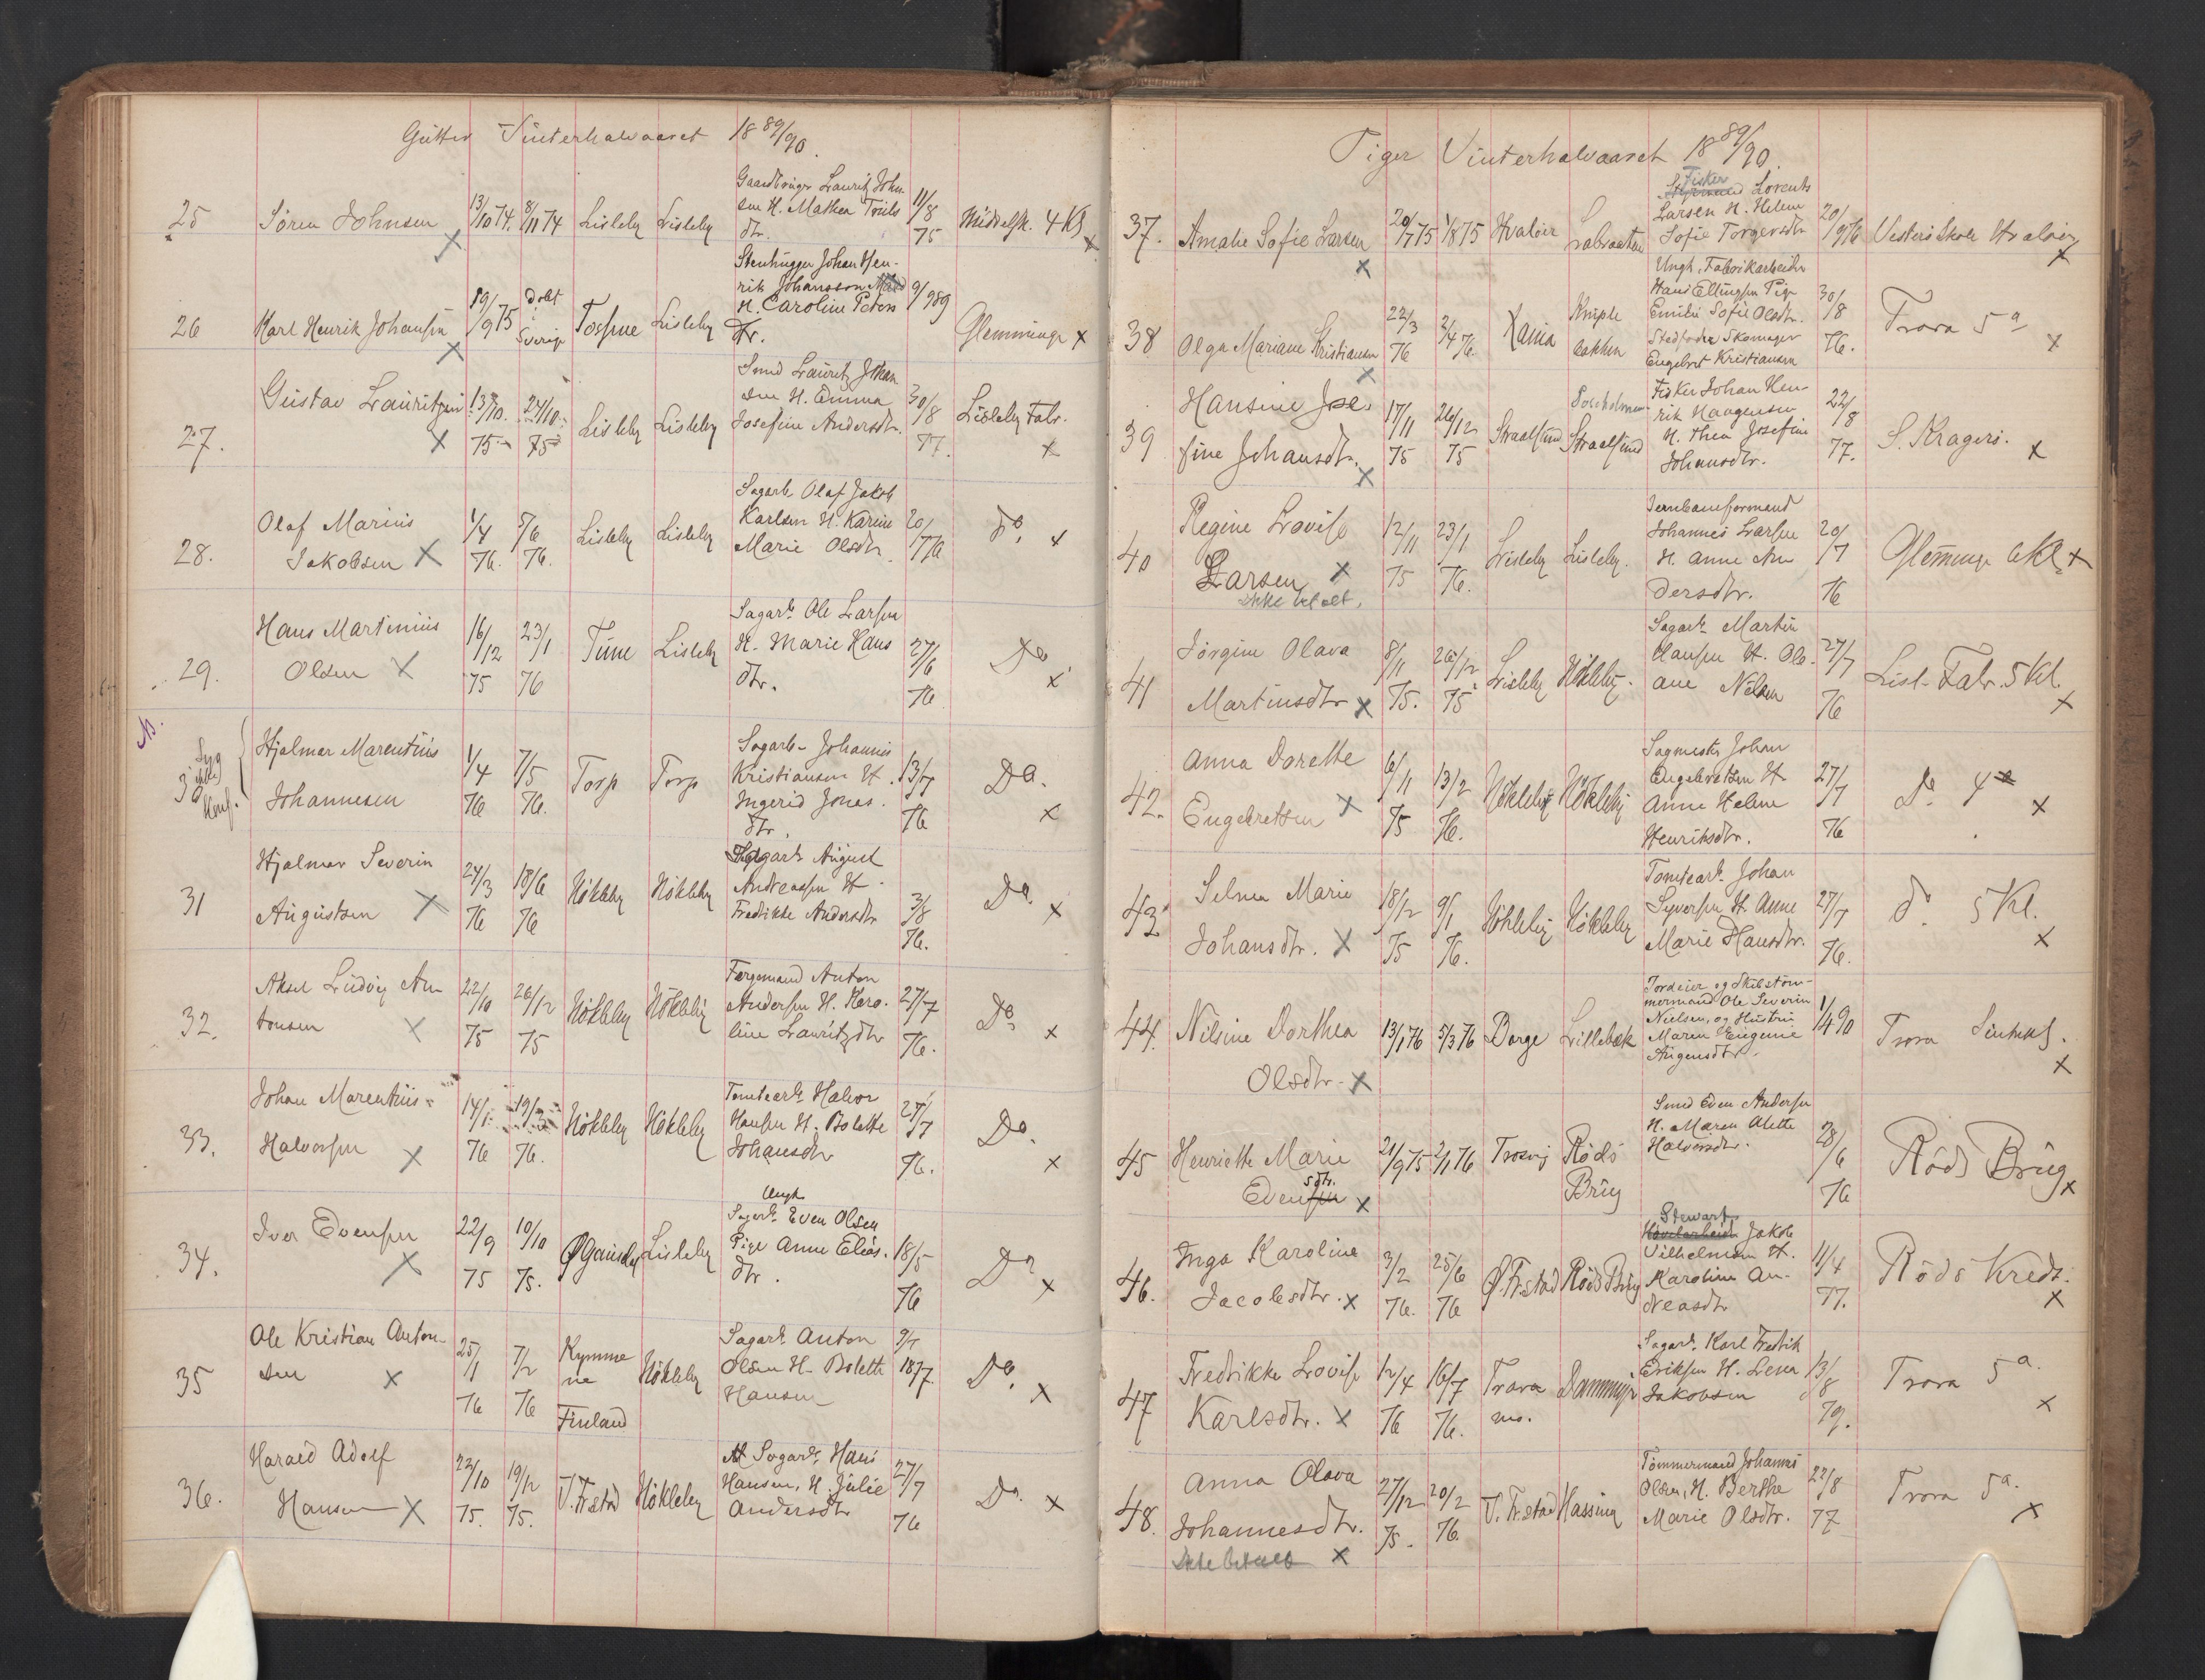 Gutter Vinterhalvaaret 18 89/90.
25 Søren Johnsen 13/10 74. 8/11 74 Lisleby Lisleby Gaardbruger Lauritz John-
sen H. Mathea Troels
dtr. 11/8 75 Middelsk. 4 Kl
26 Karl Henrik Johansen 19/9 75 Døbt i Sverige Torsnæ Lisleby Stenhugger Johan Hen-
rik Johansson
H. Caroline Peters
dtr. 9/9 89 Glemminge
27. Gustav Lauritzen 13/10. 75 24/10. 75 Lisleby Lisleby Smed Lauritz Johan
sen H. Emma
Josefine Andersdtr. 30/8 77. Lisleby Fabr.
28. Olaf Marius
Jakobsen 1/4 76. 5/6 76. Lisleby Lisleby Sagarb. Olaf Jakob
Karlsen H. Karine
Marie Olsdtr. 20/7 76 Do.
29. Hans Martinius
Olsen 16/12 75 23/1 76 Tune Lisleby Sagarb. Ole Larsen
H. Marie Hans
dtr. 27/6 76 Do
30 Syg ikke Konf. Hjalmar Marentius
Johannesen 1/4 76 7/5 76. Torp Torp Sagarb. Johannes
Kristiansen H.
Ingerid Jonas-
dtr. 13/7 76 Do.
31 Hjalmar Severin
Augustsen 24/3 76 18/6 76 Nökleby Nökleby Sagarb. August
Andreassen H.
Fredrikke Andersdtr 3/8 76. Do.
32. Aksel Ludvig An-
tonsen 22/10 75 26/12 75 Nökleby Nökleby Færgemand Anton
Andersen H. Karo-
line Lauritzdtr 27/7 76. Do.
33. Johan Marentius
Halvorsen 14/1 76 19/3 76. Nökleby Nökleby Tomtearb. Halvor
Hansen H. Bolette
Johansdtr 27/7 76. Do.
34. Iver Evensen 22/9 75 10/10 75. Lisleby Ungk.
Sagarb. Even Olsen
Pige Anne Elias-
dtr. 18/5 76 Do
35 Ole Kristian Anton-
sen 25/1 76 7/2 76 Kymme
ne
Finland Nökleby Sagarb. Anton
Olsen H. Bolette
Hansen 9/7 1877. Do.
36. Harald Adolf
Hansen 22/10 75. 19/12 75. V. Fr.stad Nökleby Sagarb. Hans
Hansen, H. Julie
Andersdtr 27/7 76 Do.
Piger Vinterhalvaaret 18 89/90.
37. Amalie Sofie Larsen 20/7 75 1/8 75 Hvaløer Fisker
Lorents
Larsen H. Helene
Sofie Torgersdtr 20/9 76 Vesterø Skole Hvaløer
38 Olga Mariane Kristiansen 22/3 76 2/4 76. Xania Kniple
bakken Ungk. Fabrikarbeider
Hans Ellingsen Pige
Emilie Sofie Olsdtr.
Stedfader Skomager
Engebret Kristiansen 30/8 76. Trara 5 a
39 Hansine Jose-
fine Johansdtr. 17/11 75 26/12 75 Straalsund Straalsund Fisker Johan Hen-
rik Haagensen
H. Thea Josefine
Johansdtr. 22/8 77. S. Kragerø.
40 Regine Lovise
Larsen
Ikke betalt. 12/11 75 23/1 76. Lisleby Lisleby. Jernbaneformand
Johannes Larsen
H. Anne An
dersdtr. 20/7 76 Glemminge 6 Kl.
41 Jørgine Olava
Martinsdtr 8/11 75. 26/12 75 Lisleby Nökleby. Sagarb. Martin
Hansen H. Ole-
ane Nilsen 27/7 76 Lisl. Fabr. 5 Kl.
42. Anna Dorette
Engebretsen 6/11 75 13/2 76. Nökleby Nökleby Sagmester Johan
Engebretsen H.
Anne Helene
Henriksdtr. 27/7 76 Do. 4
43 Selma Marie
Johansdtr. 18/12 75 9/1 76. Nökleby Nökleby Tomtearb. Johan
Syversen H. Anne
Marie Hansdtr. 27/7 76. Do. 5 Kl.
44. Nilsine Dorthea
Olsdtr. 13/1 76 5/3 76 Borge Lillebæk Jordeier og Skibstøm-
mermand Ole Severin
Nielsen, og Hustru
Maren Eugenie
Augensdtr. 1/4 90 Trara
45 Henriette Marie
Evensdtr. 21/9 75 2/1 76 Trosvig Röds
Brug Smed Even Andersen
H. Maren Alette
Halvorsdtr. 28/6 76 Röds Brug
46. Inga Karoline
Jacobsdtr. 3/2 76. 25/6 76 Ø. Fr.stad Röds Brug Stewart
Jakob
Vilhelmsen H.
Karoline An-
dreasdtr 11/4 77. Röds Kreds.
47 Fredrikke Lovise
Karlsdtr. 12/4 76 16/7 76. Trara
mo. Dammyr Sagarb. Karl Fredrik
Eriksen H. Lena
Jakobsen 13/8 79. Trara 5 a.
48. Anna Olava
Johannesdtr.
Ikke betalt 27/12 75. 20/2 76. V. Fr.stad Hassing Tömmermand Johannes
Olsen, H. Berthe
Marie Olsdtr. 22/8 77 Trara 5 a.